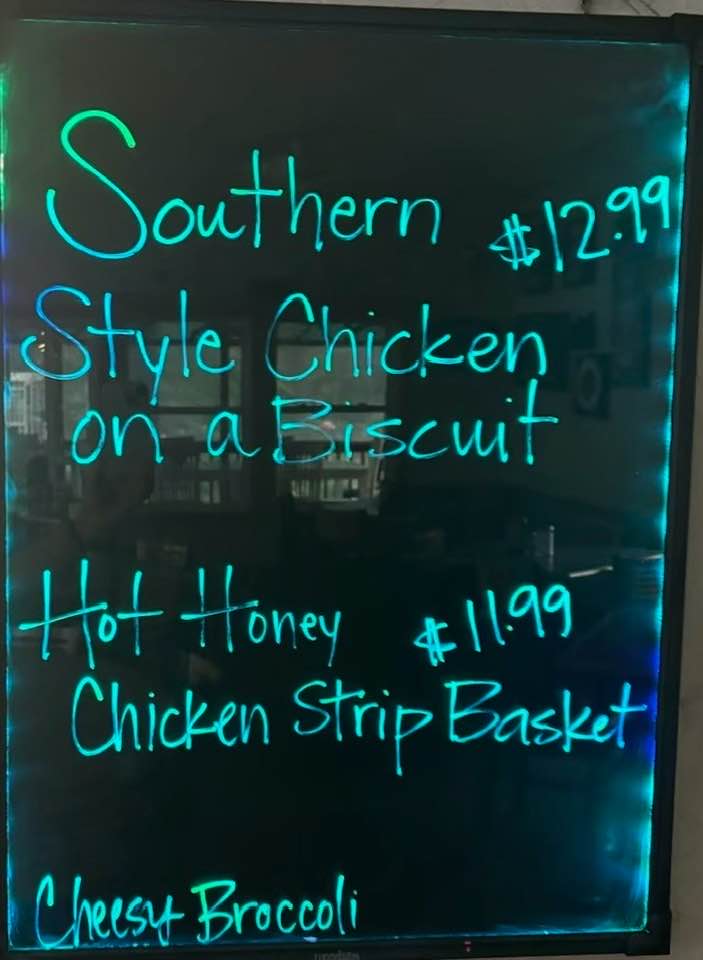 Southern $12.99
Style Chicken
on a Biscuit
Hot Honey $11.99
Chicken Strip Basket
Cheesy Broccoli